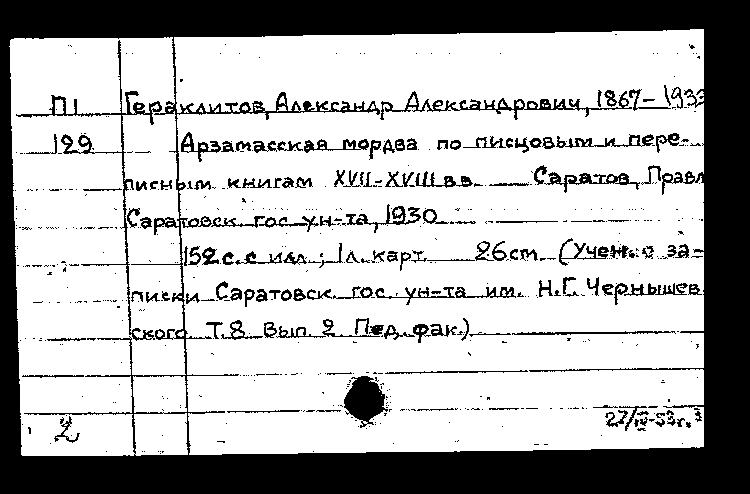 П1 Гераклитов, Александр Александрович, 1867- 1933
129 Арзамасская мордва по писцовым и пере-
писным книгам XVII-XVIII вв. Саратов, Правл
Саратовск. гос. ун-та, 1930
152 с. с илл.; 1 л. карт. 26 cm (Учен. за-
писки Саратовск. гос. ун-та им. Н.Г. Чернышев
ского. Т. 8 Вып. 2. Пед. фак.)
2